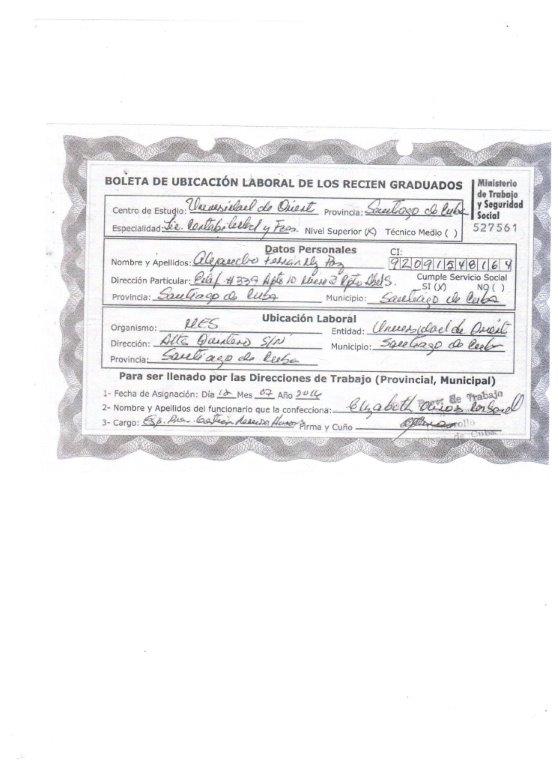 BOLETA DE UBICACIÓN LABORAL DE LOS RECIEN GRADUADOS
Ministerio
de Trabajo
y Seguridad
Social
527561
Centro de Estudio: Universidad de Orient Provincia: Santiago de Cuba
Especialidad: Lic. Contabilidad y Fzas. Nivel Superior (X) Técnico Medio ( )
Datos Personales
CI:
Nombre y Apellidos: Alejandro Fernández Paz 92091548164
Dirección Particular: Edif #339 Apto 10 Cumple Servicio Social
SI (X) NO ( )
Provincia: Santiago de Cuba Municipio: Santiago de Cuba
Ubicación Laboral
Organismo: MES Entidad: Universidad de Orient
Dirección: Alta Quintero S/N Municipio: Santiago de Cuba
Provincia: Santiago de Cuba
Para ser llenado por las Direcciones de Trabajo (Provincial, Municipal)
1- Fecha de Asignación: Día 12 Mes 07 Año 2016
2- Nombre y Apellidos del funcionario que la confecciona: Elizabeth de Trabajo
3- Cargo: Esp. Firma y Cuño
de Cuba